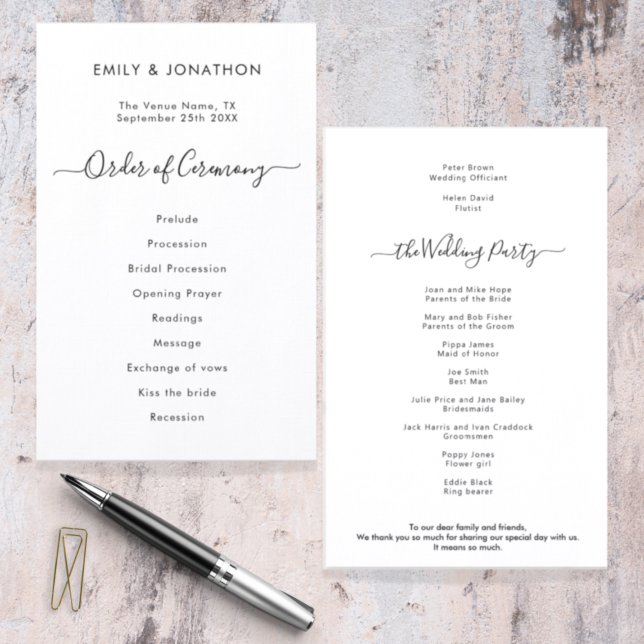 EMILY & JONATHON
The Venue Name, TX
September 25th 20XX
Order of Ceremony
Prelude
Procession
Bridal Procession
Opening Prayer
Readings
Message
Exchange of vows
Kiss the bride
Recession
Peter Brown
Wedding Officiant
Helen David
Flutist
the Wedding Party
Joan and Mike Hope
Parents of the Bride
Mary and Bob Fisher
Parents of the Groom
Pippa James
Maid of Honor
Joe Smith
Best Man
Julie Price and Jane Bailey
Bridesmaids
Jack Harris and Ivan Craddock
Groomsmen
Poppy Jones
Flower girl
Eddie Black
Ring bearer
To our dear family and friends,
We thank you so much for sharing our special day with us.
It means so much.